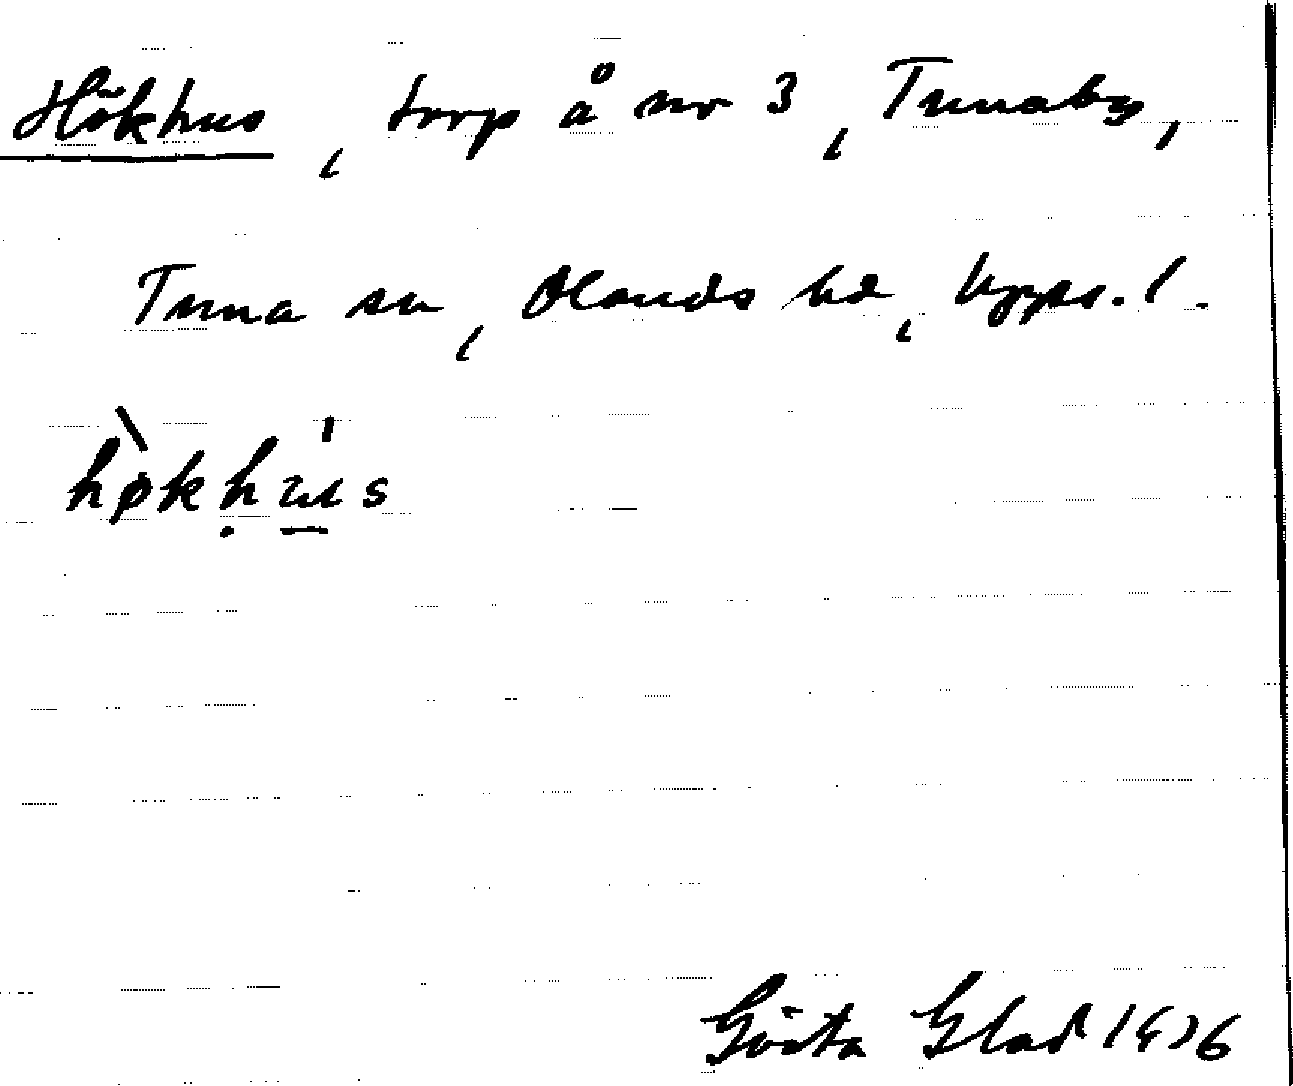 Hökhus, torp å nr 3, Tunaby,
Tuna sn, Olands hd, Upps. l.
hø̀khu̍s
Gösta Glad 1936